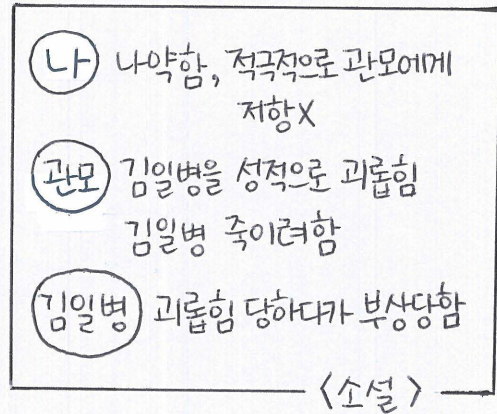 나 나약함, 적극적으로 관모에게
저항X
관모 김일병을 성적으로 괴롭힘
김일병 죽이려함
김일병 괴롭힘 당하다가 부상당함
<소설>